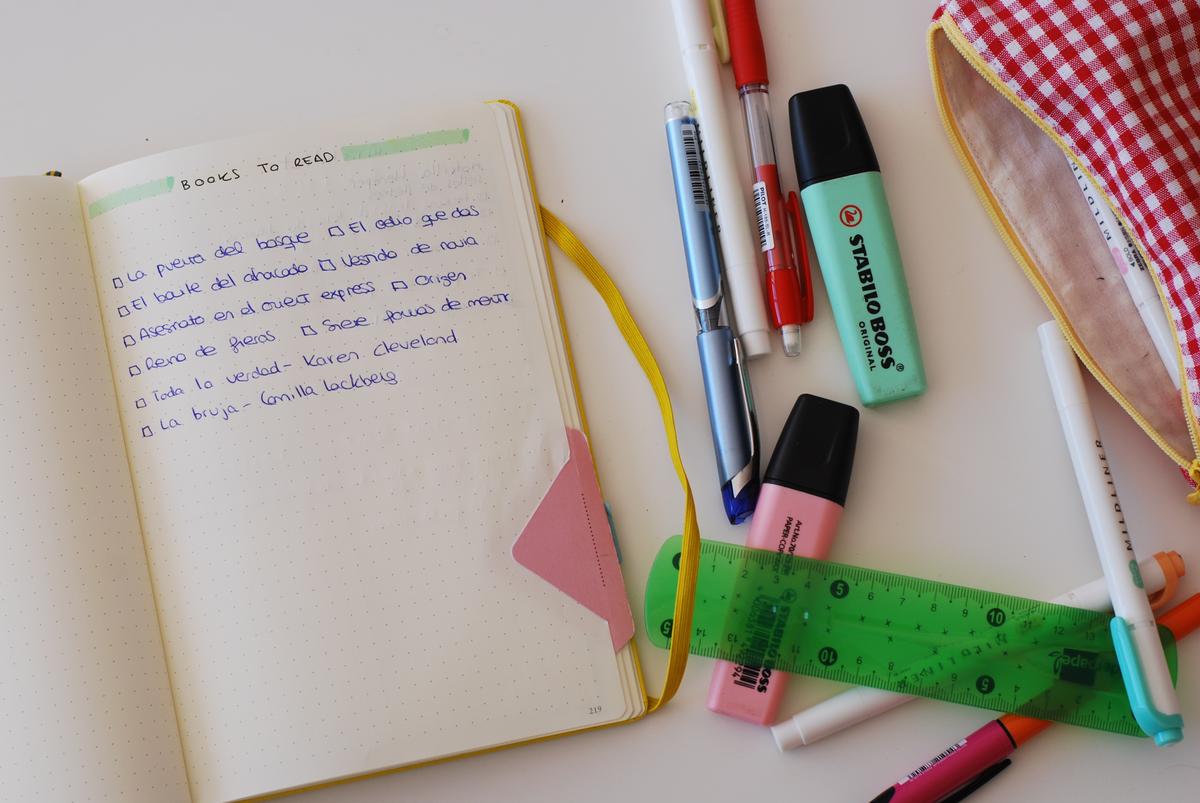 BOOKS TO READ
□ La puerta del bosque □ El odio que das
□ El baile del ahorcado □ Vestido de novia
□ Asesinato en el orient express □ Origen
□ Reino de fieras □ Siete formas de mentir
□ Toda la verdad - Karen Cleveland
□ La bruja - Camilla Lackberg
219
PILOT
STABILO BOSS
ORIGINAL
MILDLINER
STABILO BOSS
MILDLINER
1 2 3 4 5 6 7 8 9 10 11 12 13
14 13 10 5 4